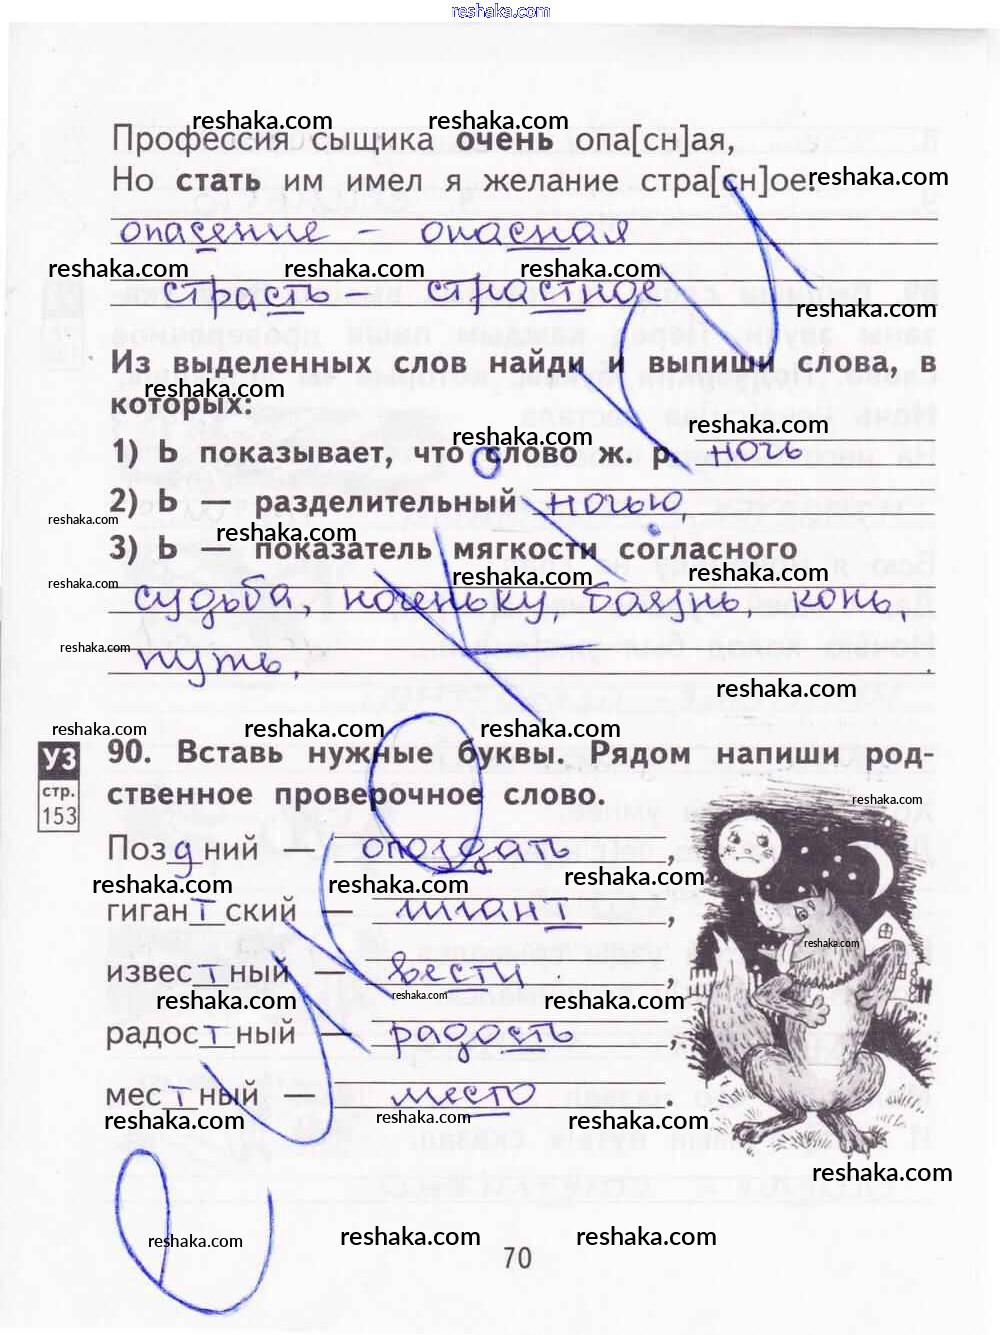 reshaka.com
reshaka.com reshaka.com
Профессия сыщика очень опа[сн]ая,
Но стать им имел я желание стра[сн]ое!
reshaka.com
опасение – опасная
reshaka.com reshaka.com reshaka.com
страсть – страстное
Из выделенных слов найди и выпиши слова, в
reshaka.com
которых:
reshaka.com reshaka.com
1) Ь показывает, что слово ж. р. ночь
2) Ь — разделительный ночью,
reshaka.com reshaka.com
3) Ь — показатель мягкости согласного
reshaka.com reshaka.com reshaka.com
судьба, ноченьку, боязнь, конь,
reshaka.com
путь.
reshaka.com
reshaka.com reshaka.com reshaka.com
УЗ
стр.
153
90. Вставь нужные буквы. Рядом напиши род-
ственное проверочное слово.
reshaka.com
Поздний — опоздать,
reshaka.com reshaka.com reshaka.com
гигантский — гигант,
reshaka.com
известный — вести,
reshaka.com reshaka.com reshaka.com
радостный — радость,
местный — место.
reshaka.com reshaka.com reshaka.com
reshaka.com
reshaka.com reshaka.com reshaka.com
70